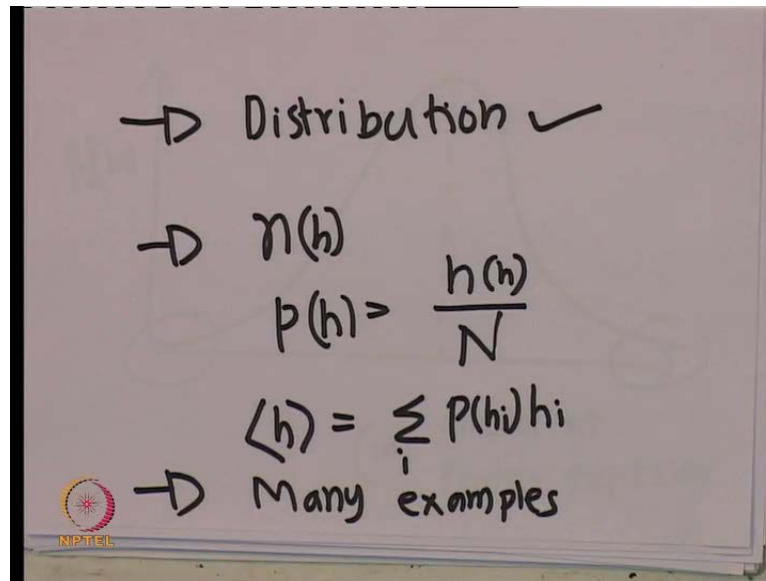 → Distribution ✓
→ n(h)
p(h) = n(h)/N
⟨h⟩ = Σ_i P(hi) hi
→ Many examples
NPTEL